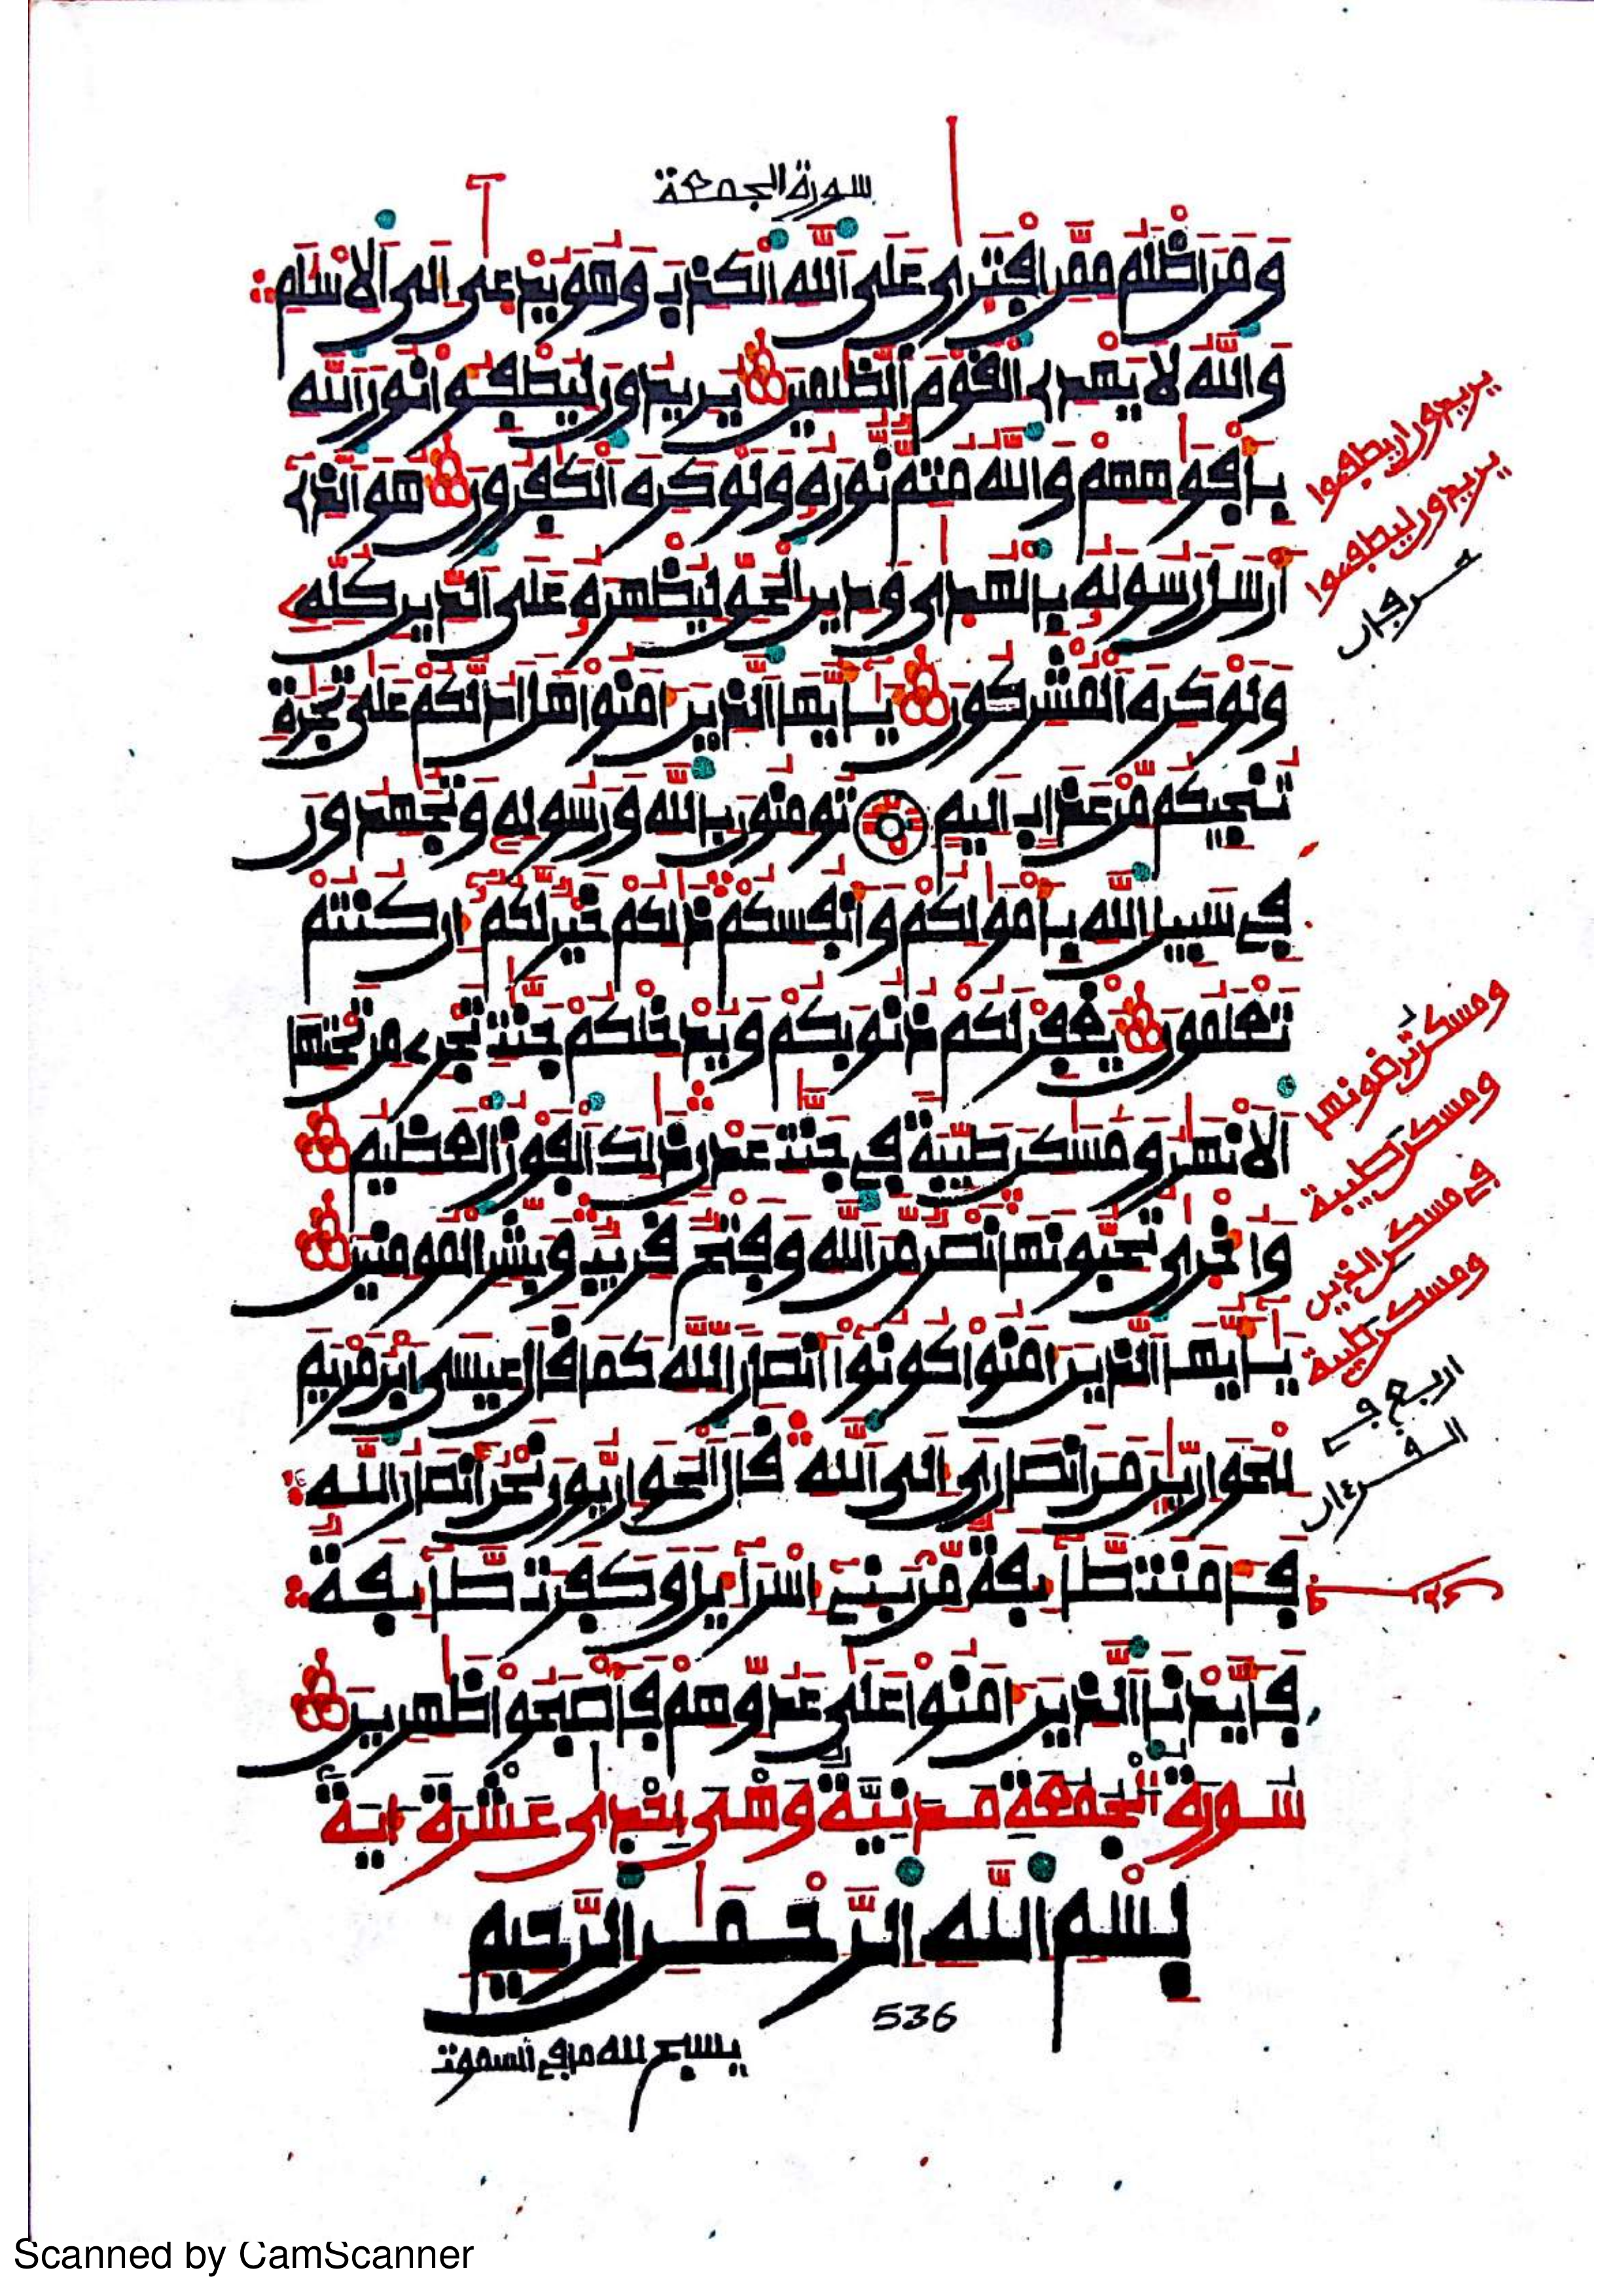 سورة الجمعة
وَمَنَ اَظْلَمُ مِمَّنِ اِفْتَر۪ىٰ عَلَى اَ۬للَّهِ اِ۬لْكَذِبَ وَهُوَ يُدْع۪ىٰٓ إِلَى اَ۬لِاسْلَٰمِ
وَاللَّهُ لَا يَهْدِے اِ۬لْقَوْمَ اَ۬لظَّٰلِمِينَ يُرِيدُونَ لِيُطْفِـُٔوا نُورَ اَ۬للَّهِ
بِأَفْوَٰهِهِمْ وَاللَّهُ مُتِمٌّ نُّورَهُۥ وَلَوْ كَرِهَ اَ۬لْكَٰفِرُونَ هُوَ اَ۬لذِےٓ
أَرْسَلَ رَسُولَهُۥ بِالْهُد۪ىٰ وَدِينِ اِ۬لْحَقِّ لِيُظْهِرَهُۥ عَلَى اَ۬لدِّينِ كُلِّهِۦ
وَلَوْ كَرِهَ اَ۬لْمُشْرِكُونَ يَٰٓأَيُّهَا اَ۬لذِينَ ءَامَنُوا هَلَ اَدُلُّكُمْ عَلَىٰ تِجَٰرَةٖ
تُنجِيكُم مِّنْ عَذَابٍ اَلِيمٖ تُومِنُونَ بِاللَّهِ وَرَسُولِهِۦ وَتُجَٰهِدُونَ
فِے سَبِيلِ اِ۬للَّهِ بِأَمْوَٰلِكُمْ وَأَنفُسِكُمْ ذَٰلِكُمْ خَيْرٞ لَّكُمُۥٓ إِن كُنتُمْ
تَعْلَمُونَ يَغْفِرْ لَكُمْ ذُنُوبَكُمْ وَيُدْخِلْكُمْ جَنَّٰتٖ تَجْرِے مِن تَحْتِهَا
اَ۬لَانْهَٰرُ وَمَسَٰكِنَ طَيِّبَةٗ فِے جَنَّٰتِ عَدْنٖ ذَٰلِكَ اَ۬لْفَوْزُ اُ۬لْعَظِيمُ
وَأُخْر۪ىٰ تُحِبُّونَهَا نَصْرٞ مِّنَ اَ۬للَّهِ وَفَتْحٞ قَرِيبٞ وَبَشِّرِ اِ۬لْمُومِنِينَ
يَٰٓأَيُّهَا اَ۬لذِينَ ءَامَنُوا كُونُوٓا أَنصَاراٗ لِّلهِ كَمَا قَالَ عِيسَى اَ۪بْنُ مَرْيَمَ
لِلْحَوَارِيِّـۧنَ مَنَ اَنصَارِيَ إِلَى اَ۬للَّهِ قَالَ اَ۬لْحَوَارِيُّونَ نَحْنُ أَنصَارُ اُ۬للَّهِ
فَـَٔامَنَت طَّآئِفَةٞ مِّنۢ بَنِےٓ إِسْرَآءِيلَ وَكَفَرَت طَّآئِفَةٞ
فَأَيَّدْنَا اَ۬لذِينَ ءَامَنُوا عَلَىٰ عَدُوِّهِمْ فَأَصْبَحُوا ظَٰهِرِينَ
سُورَةُ الْجُمُعَةِ مَدَنِيَّةٌ وَهْىَ إِحْدَى عَشْرَةَ ءَايَةً
بِسْمِ اِ۬للَّهِ اِ۬لرَّحْمَٰنِ اِ۬لرَّحِيمِ
536
يسبح لله ما في السموت
يريدون ان يطفوا
يريدون ليطفوا
حرفان
ومسكن ترضونها
ومسكن طيبة
في مسكن الذين
ومسكن طيبة
اربع في
القرءان
Scanned by CamScanner